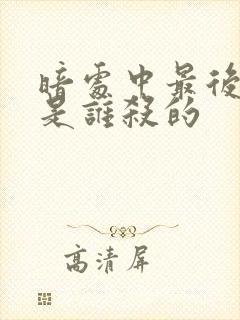 暗處中最後
是誰殺的
高清屏